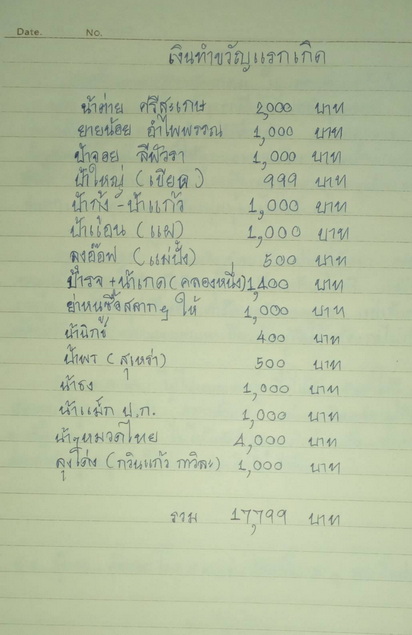 Date. No.
เงินทำขวัญแรกเกิด
น้าต่าย ศรีสะเกษ 2,000 บาท
ยายน้อย อำไพพรรณ 1,000 บาท
ป้าจอย สีผิวรา 1,000 บาท
ป้าใหญ่ (เขียด) 999 บาท
ป้ากุ้ง - ป้าแก้ว 1,000 บาท
ป้าแอ่น (แม) 1,000 บาท
ลุงอ๊อฟ (แม่ปั้ง) 500 บาท
ป้ารจ + น้าเกด (คลองหนึ่ง) 1,400 บาท
ย่าหนูซื้อสลากฯ ให้ 1,000 บาท
น้านิกซ์ 400 บาท
น้ำพร (สุเหร่า) 500 บาท
น้าธง 1,000 บาท
น้าแม็ก ป.ก. 1,000 บาท
น้าๆหมวดไทย 4,000 บาท
ลุงโด่ง (กวินแก้ว กาวิละ) 1,000 บาท
รวม 17,799 บาท